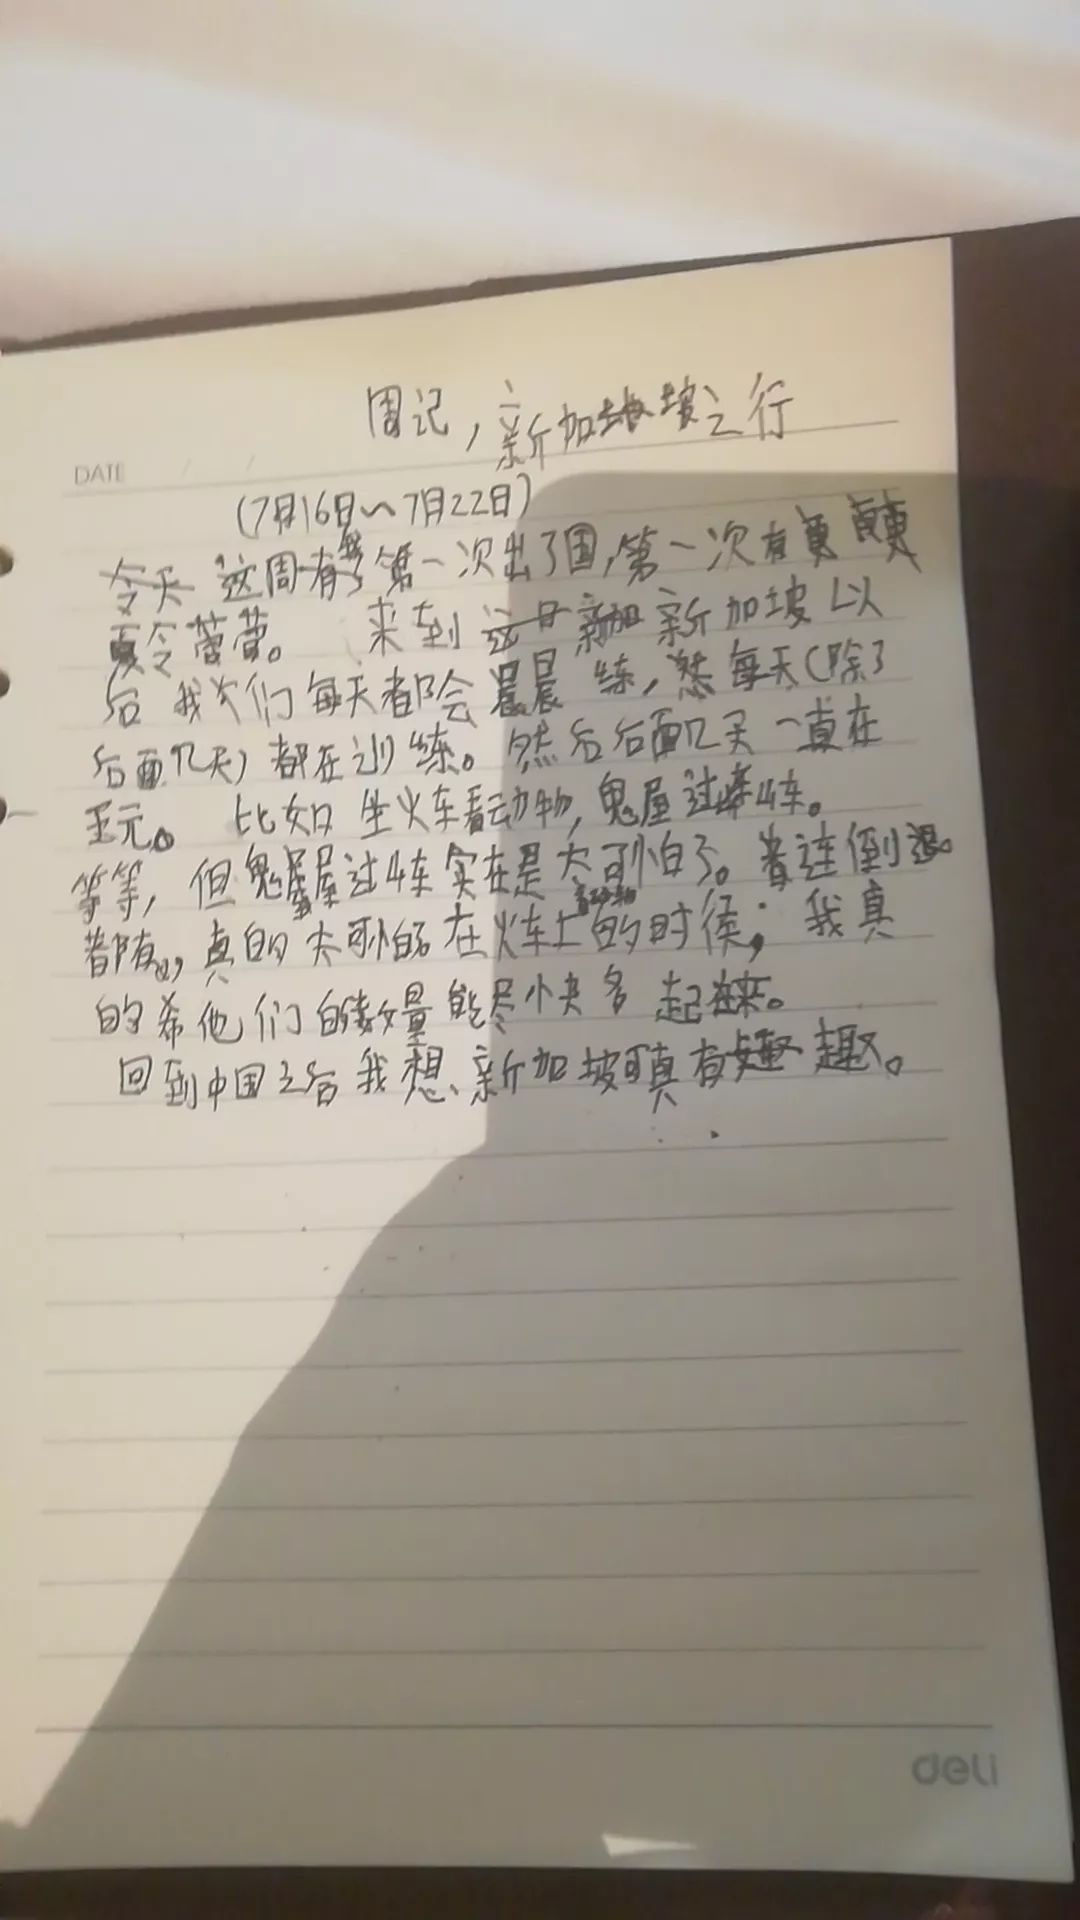 周记,新加坡之行
DATE / /
(7月16日~7月22日)
这周我第一次出了国,第一次有
夏令营。来到新加坡以
后我们每天都会晨练,每天(除了
后面几天)都在训练。然后后面几天一直在
玩。比如坐火车看动物,鬼屋过山车。
等等,但鬼屋过山车实在是太可怕了。连倒退
都有,真的太可怕了在火车上看动物的时候,我真
的希他们的数量能尽快多起来。
回到中国之后我想、新加坡真有趣。
deli